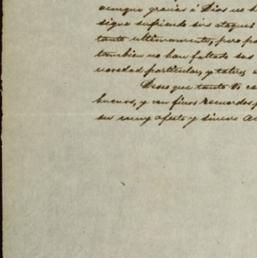 aunque gracias á Dios no h
sigue sufriendo sus ataques
tanto ultimamente, pero pa
tambien no han faltado sus
novedad particular, y tal vez
Deseo que tanto V. co
buenos, y con finos recuerdos p
su muy afecto y sincero a